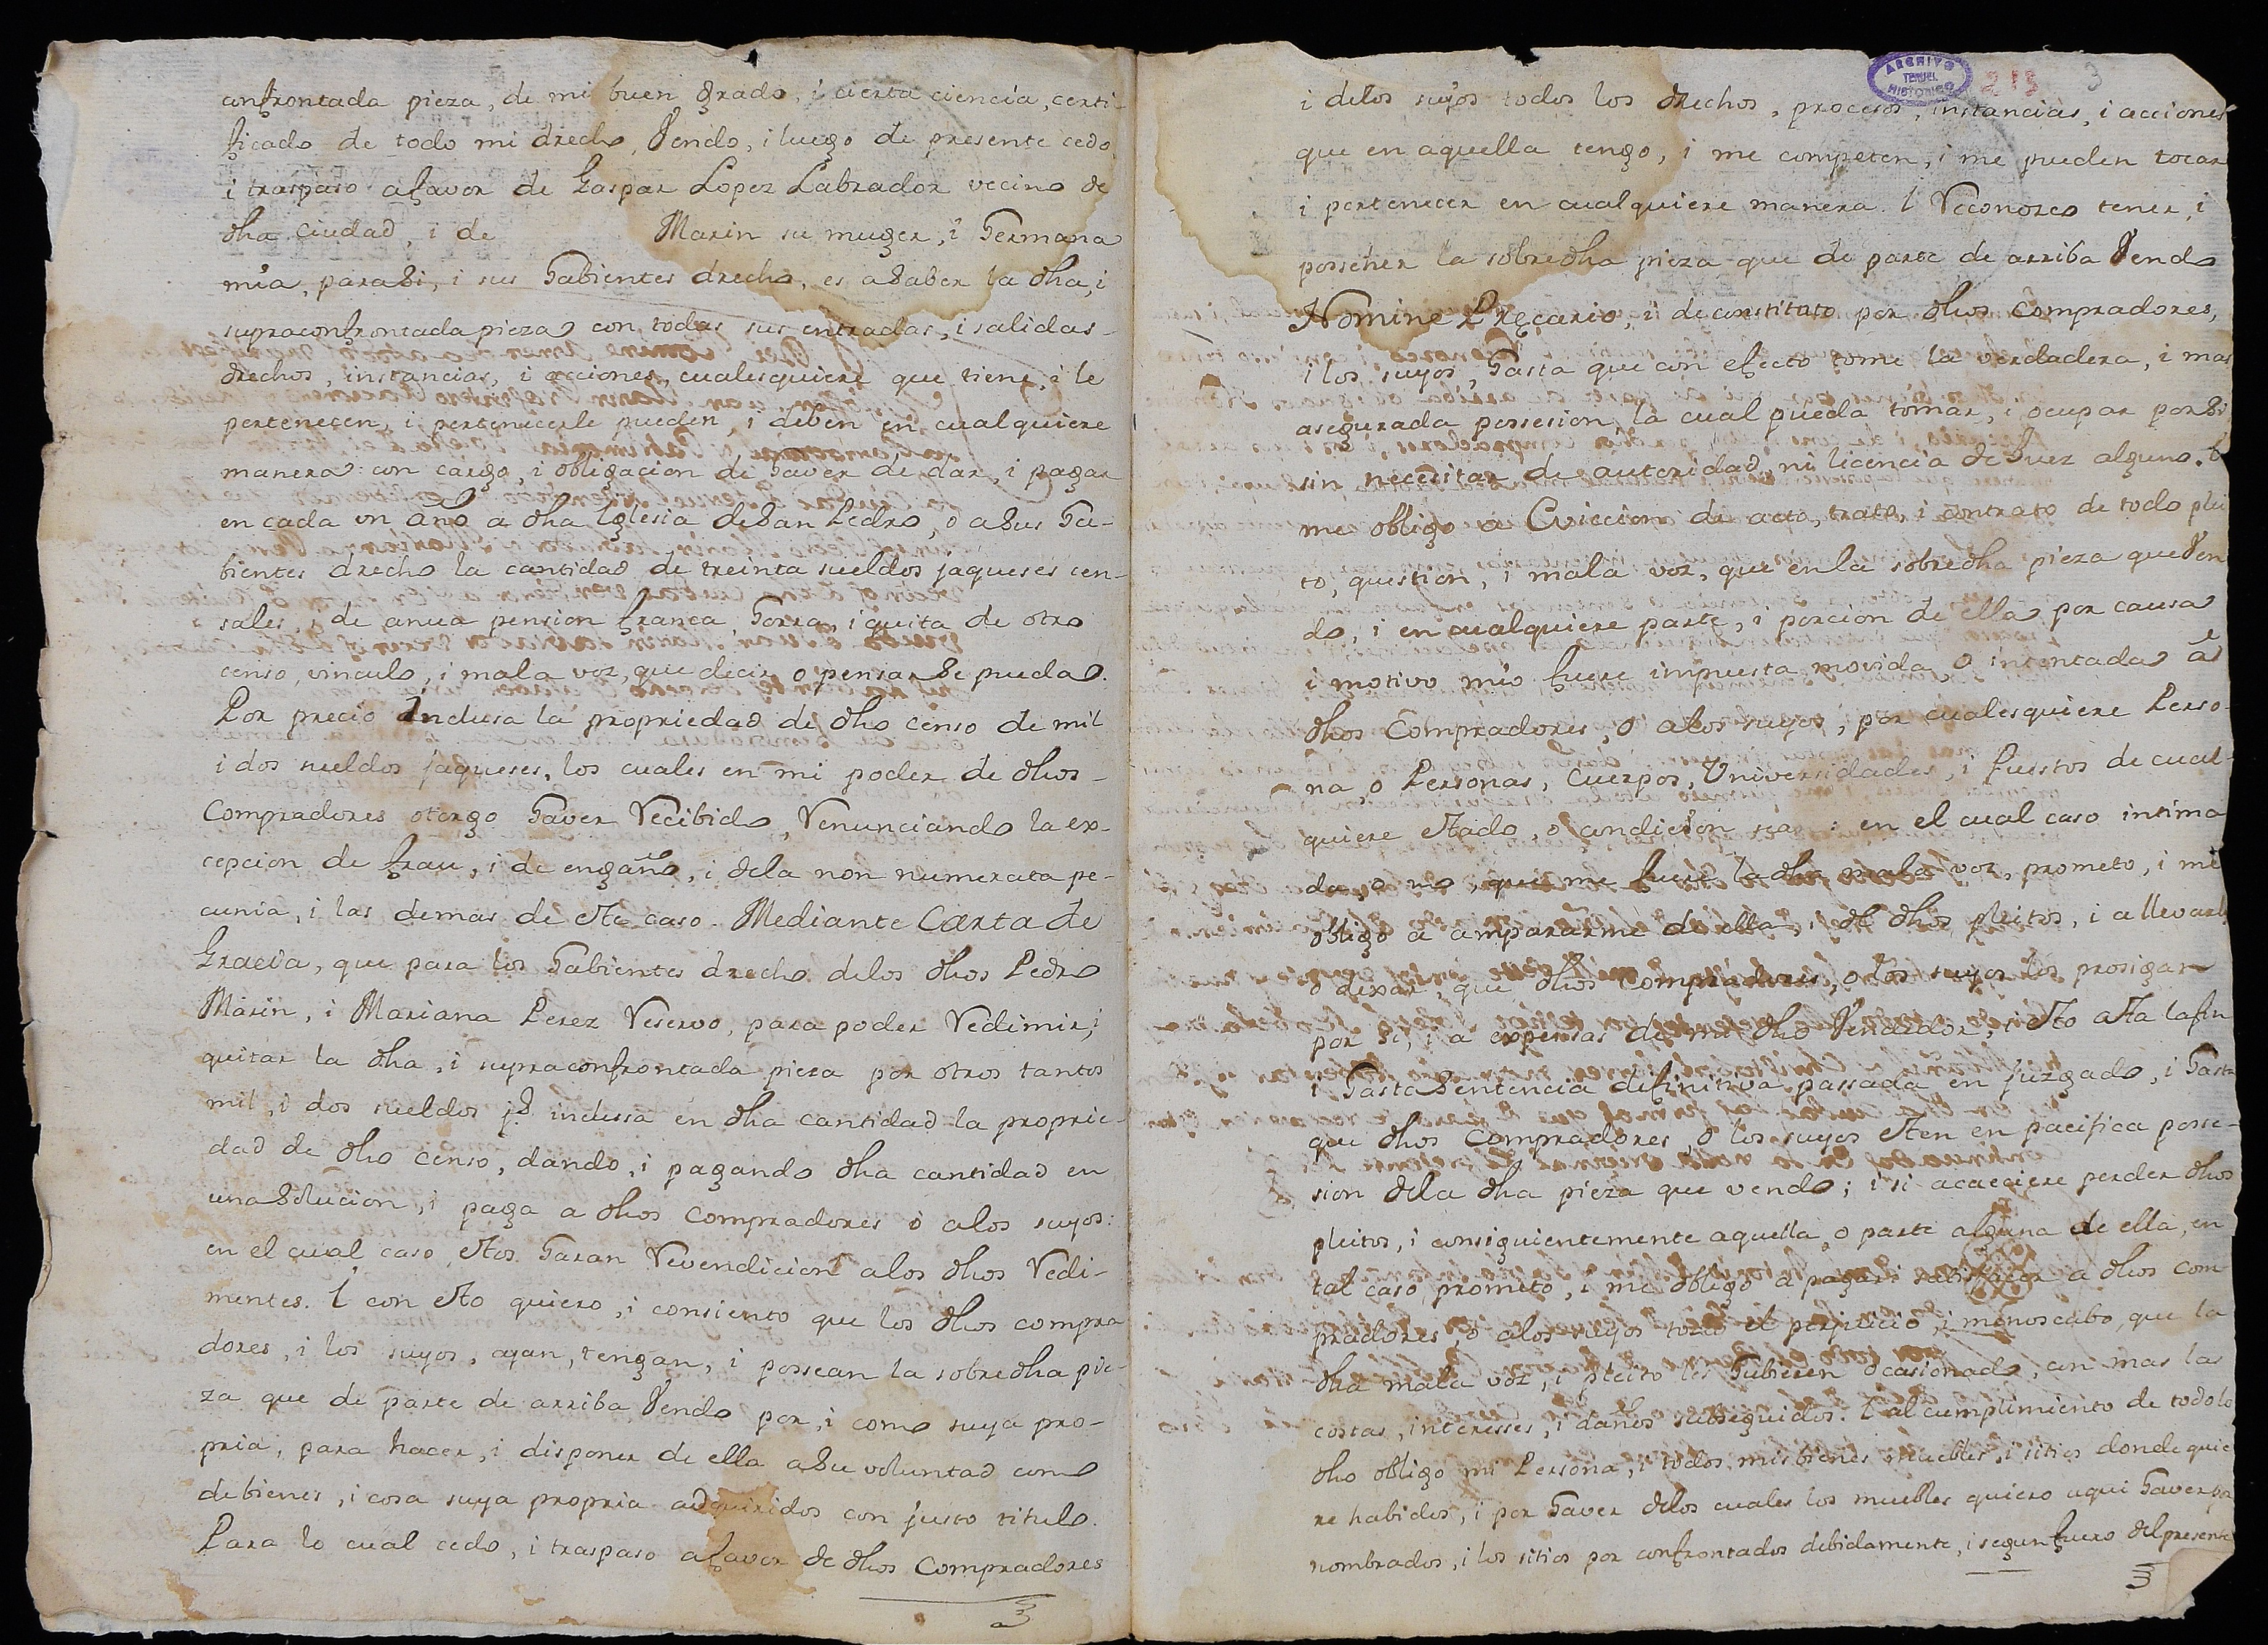 confrontada pieza, de mi buen grado, i cierta ciencia, certi-
ficado de todo mi drecho, Vendo, i luego de presente cedo,
i traspaso afavor de Gaspar Lopez Labrador vecino de
dha ciudad, i de Marin su muger, i Hermana
mia, parasi, i sus Habientes drecho, es asaber la dha, i
supraconfrontada pieza con todas sus entradas, i salidas-
drechos, instancias, i acciones, cualesquiere que tiene, i le
pertenecen, i pertenecerle pueden, i deben en cualquiere
manera: con cargo, i obligacion de Haver de dar, i pagar
en cada un año a dha Iglesia deSan Pedro, o asus Ha-
bientes drecho la cantidad de treinta sueldos jaqueses cen-
sales, i de anua pension franca, Horra, i quita de otro
censo, vinculo, i mala voz, que decir, o pensar se pueda.
Por precio inclusa la propriedad de dho censo de mil
i dos sueldos jaqueses, los cuales en mi poder de dhos-
Compradores otorgo Haver Recibido, Renunciando la ex-
cepcion de frau, i de engaño, i dela non numerata pe-
cunia, i las demas de este caso. Mediante Carta de
Gracia, que para los Habientes drecho delos dhos Pedro
Marin, i Mariana Perez Reservo, para poder Redimir, i
quitar la dha, i supraconfrontada pieza por otros tantos
mil, i dos sueldos js. inclussa en dha cantidad la proprie-
dad de dho censo, dando, i pagando dha cantidad en
una Solucion, i paga a dhos Compradores o alos suyos:
en el cual caso estos Haran Revendicion alos dhos Redi-
mentes. I con esto quiero, i consiento que los dhos compra
dores, i los suyos, ayan, tengan, i possean la sobredha pie-
za que de parte de arriba Vendo por, i como suya pro-
pria, para hacer, i disponer de ella aSu voluntad como
debienes, i cosa suya propria adquiridos con justo titulo.
Para lo cual cedo, i traspaso afavor de dhos Compradores
ARCHIVO
TERUEL
HISTORICO
213
3
i delos suyos todos los drechos, procesos, instancias, i acciones
que en aquella tengo, i me competen, i me pueden tocar
i pertenecer en cualquiere manera. I Reconozco tener, i
posseher la sobredha pieza que de parte de arriba Vendo
Nomine Precario, i deconstituto por dhos Compradores,
i los suyos, Hasta que con efecto tome la verdadera, i mas
asegurada possesion, la cual pueda tomar, i ocupar por Si
sin necesitar de autoridad, ni licencia de Juez alguno. I
me obligo a Eviccion de acto, trato, i contrato de todo plei
to, question, i mala voz, que en la sobredha pieza que Ven
do, i en cualquiere parte, i porcion de ella por causa
i motivo mio fuere impuesta, movida, o intentada a
dhos Compradores, o alos suyos, por cualesquiere Perso-
na, o Personas, Cuerpos, Universidades, i Puestos de cual-
quiere estado, o condicion sean: en el cual caso intima
da, o no, que me fuere la dha mala voz, prometo, i me
obligo a ampararme de ella, i de dhos pleitos, i a llevarlos
o dexar, que dhos Compradores, o los suyos los prosigan
por Si, i a expensas de mi dho Vendedor, i esto asta la fin
i Hasta Sentencia definitiva passada en juzgado, i Hasta
que dhos Compradores, o los suyos esten en pacifica posse-
sion dela dha pieza que vendo; i si acaeciere perder dhos
pleitos, i consiguientemente aquella, o parte alguna de ella, en
tal caso prometo, i me obligo a pagar i satisfacer a dhos com
pradores, o alos suyos todo el perjuicio, i menoscabo, que la
dha mala voz, i pleito les Hubieren ocasionado, con mas las
costas, interesses, i daños subseguidos. I al cumplimiento de todo lo
dho obligo mi Persona, i todos mis bienes muebles, i sitios donde quie
re habidos, i por Haver delos cuales los muebles quiero aqui Haver por
nombrados, i los sitios por confrontados debidamente, i segun fuero del presente